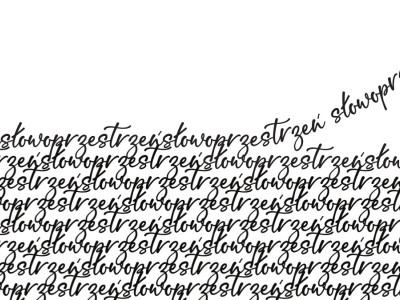 słowoprzestrzeńsłowoprzestrzeń słowoprz
rzeńsłowoprzestrzeńsłowoprzestrzeńsłow
przestrzeńsłowoprzestrzeńsłowoprzestrze
owoprzestrzeńsłowoprzestrzeńsłowoprze
estrzeńsłowoprzestrzeńsłowoprzestrzeńsło
słowoprzestrzeńsłowoprzestrzeńsłowoprze
rzeńsłowoprzestrzeńsłowoprzestrzeńsłow
przestrzeńsłowoprzestrzeńsłowoprzestrze
owoprzestrzeńsłowoprzestrzeńsłowoprze